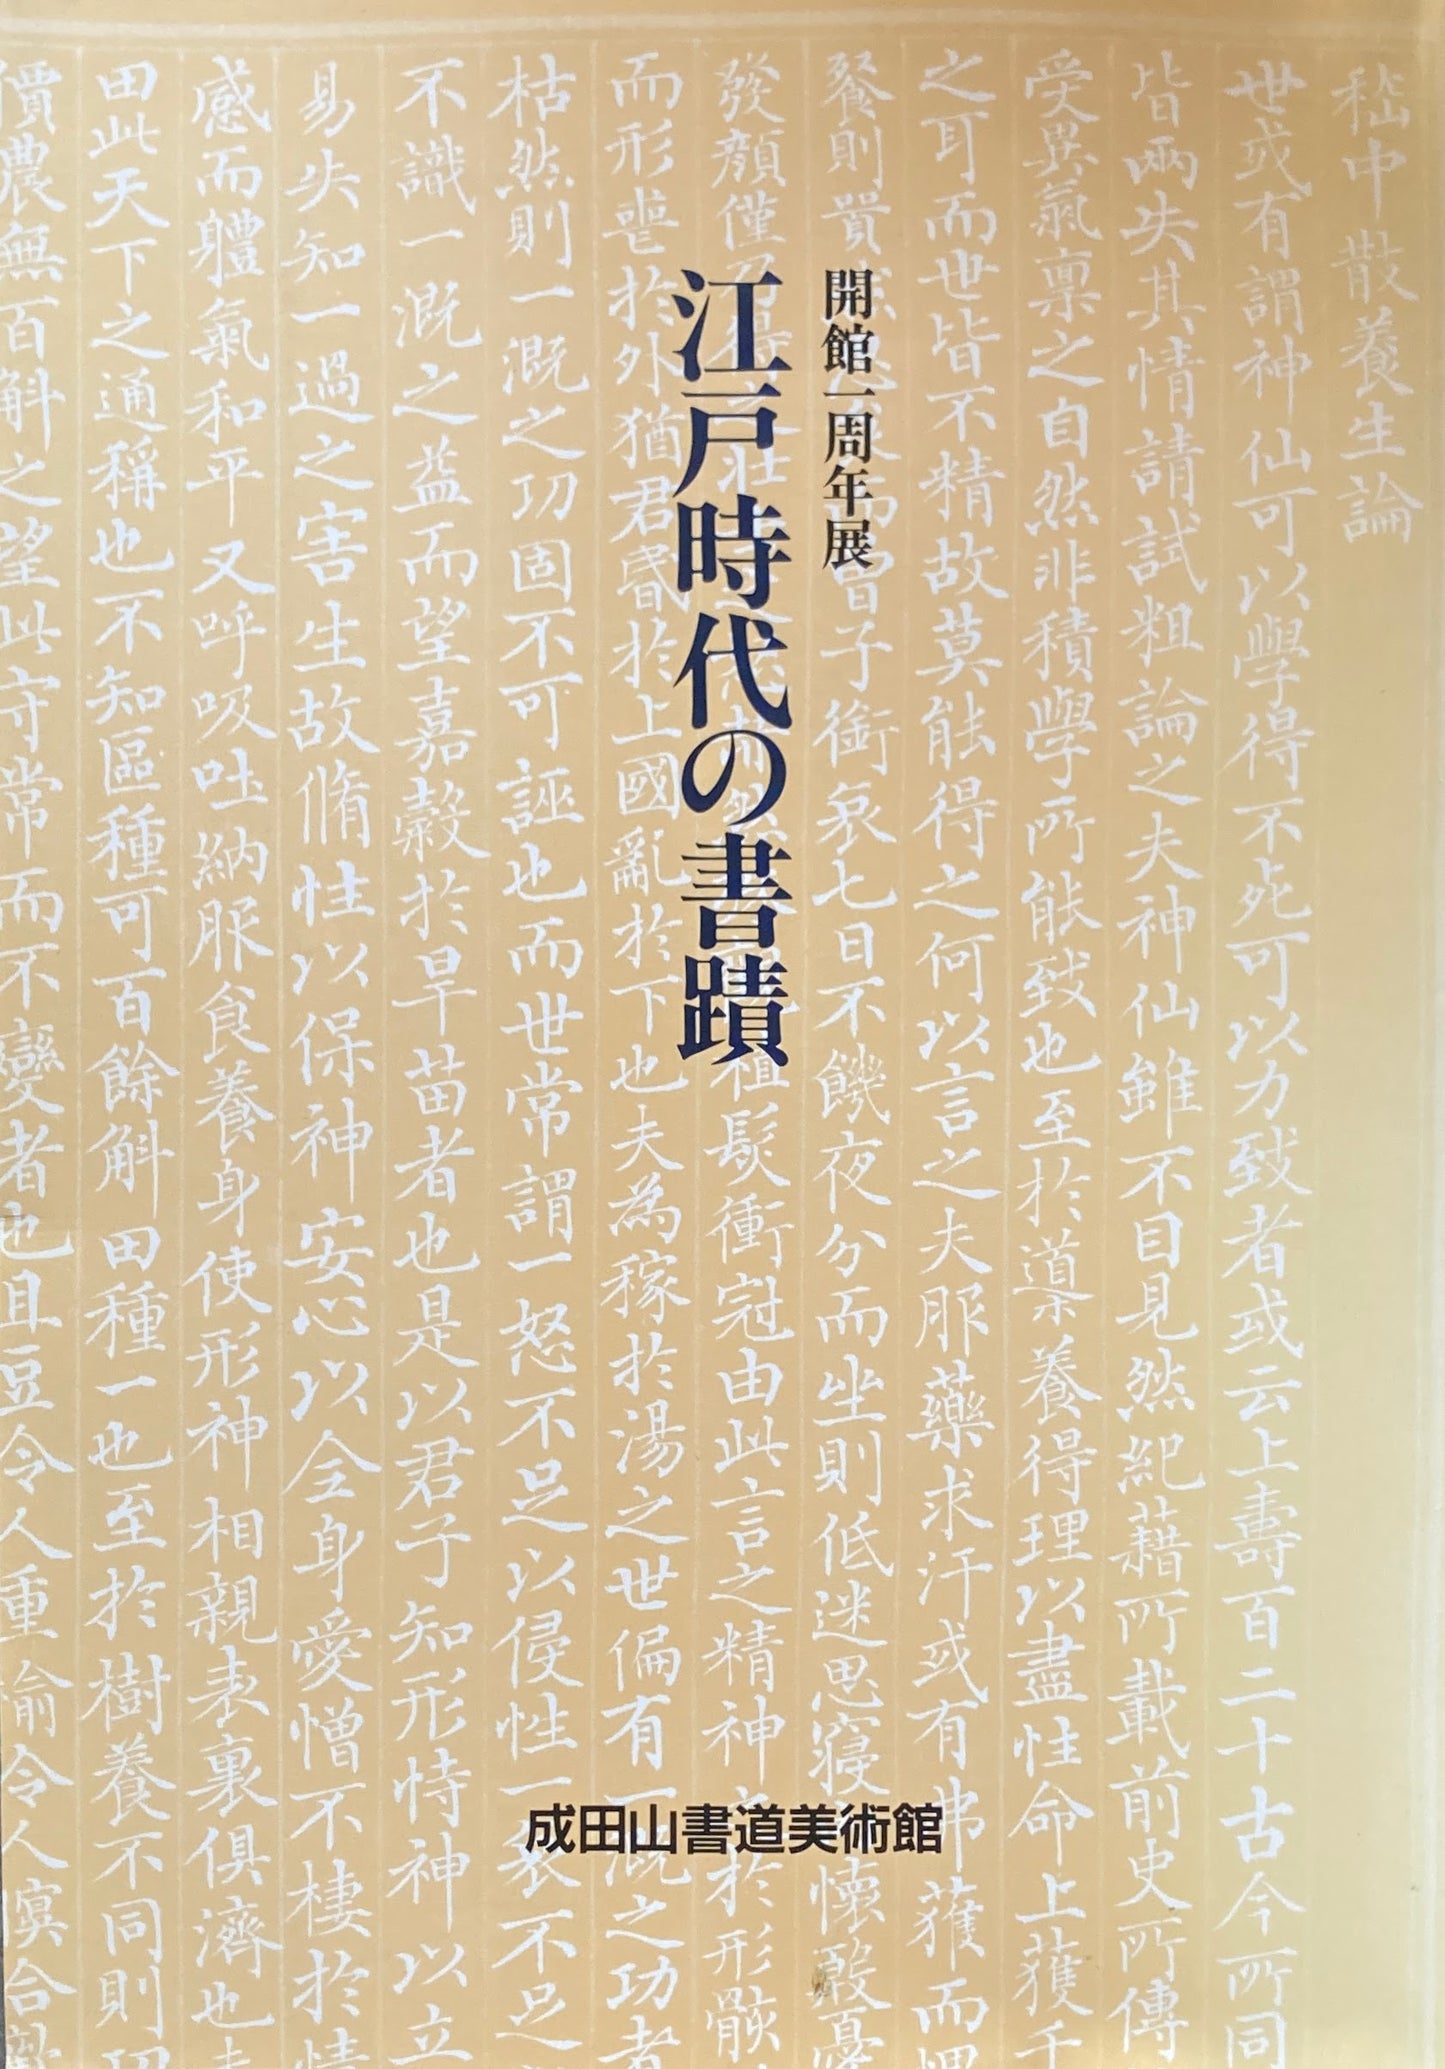 開館一周年展
江戸時代の書蹟
成田山書道美術館
嵇中散養生論
世或有謂神仙可以學得不死可以力致者或云上壽百二十古今所同
皆兩失其情請試粗論之夫神仙雖不目見然紀藉所載前史所傳
受異氣稟之自然非積學所能致也至於導養得理以盡性命上獲千
之耳而世皆不精故莫能得之何以言之夫服藥求汗或有弗獲而愧
餐則嚻曾子銜哀七日不饑夜分而坐則低迷思寢懷殷憂
發顏僅植髮衝冠由此言之精神之於形骸
而形喪於外猶君昬於上國亂於下也夫為稼於湯之世偏有一溉之功者
枯然則一溉之功固不可誣也而世常謂一怒不足以侵性一哀不足
不識一溉之益而望嘉穀於旱苗者也是以君子知形恃神以立
易失知一過之害生故脩性以保神安心以全身愛憎不棲於情
感而體氣和平又呼吸吐納服食養身使形神相親表裏俱濟也夫
田此天下之通稱也不知區種可百餘斛田種一也至於樹養不同則功
價農無百斛之望此守常而不變者也且豆令人重榆令人寞合歡